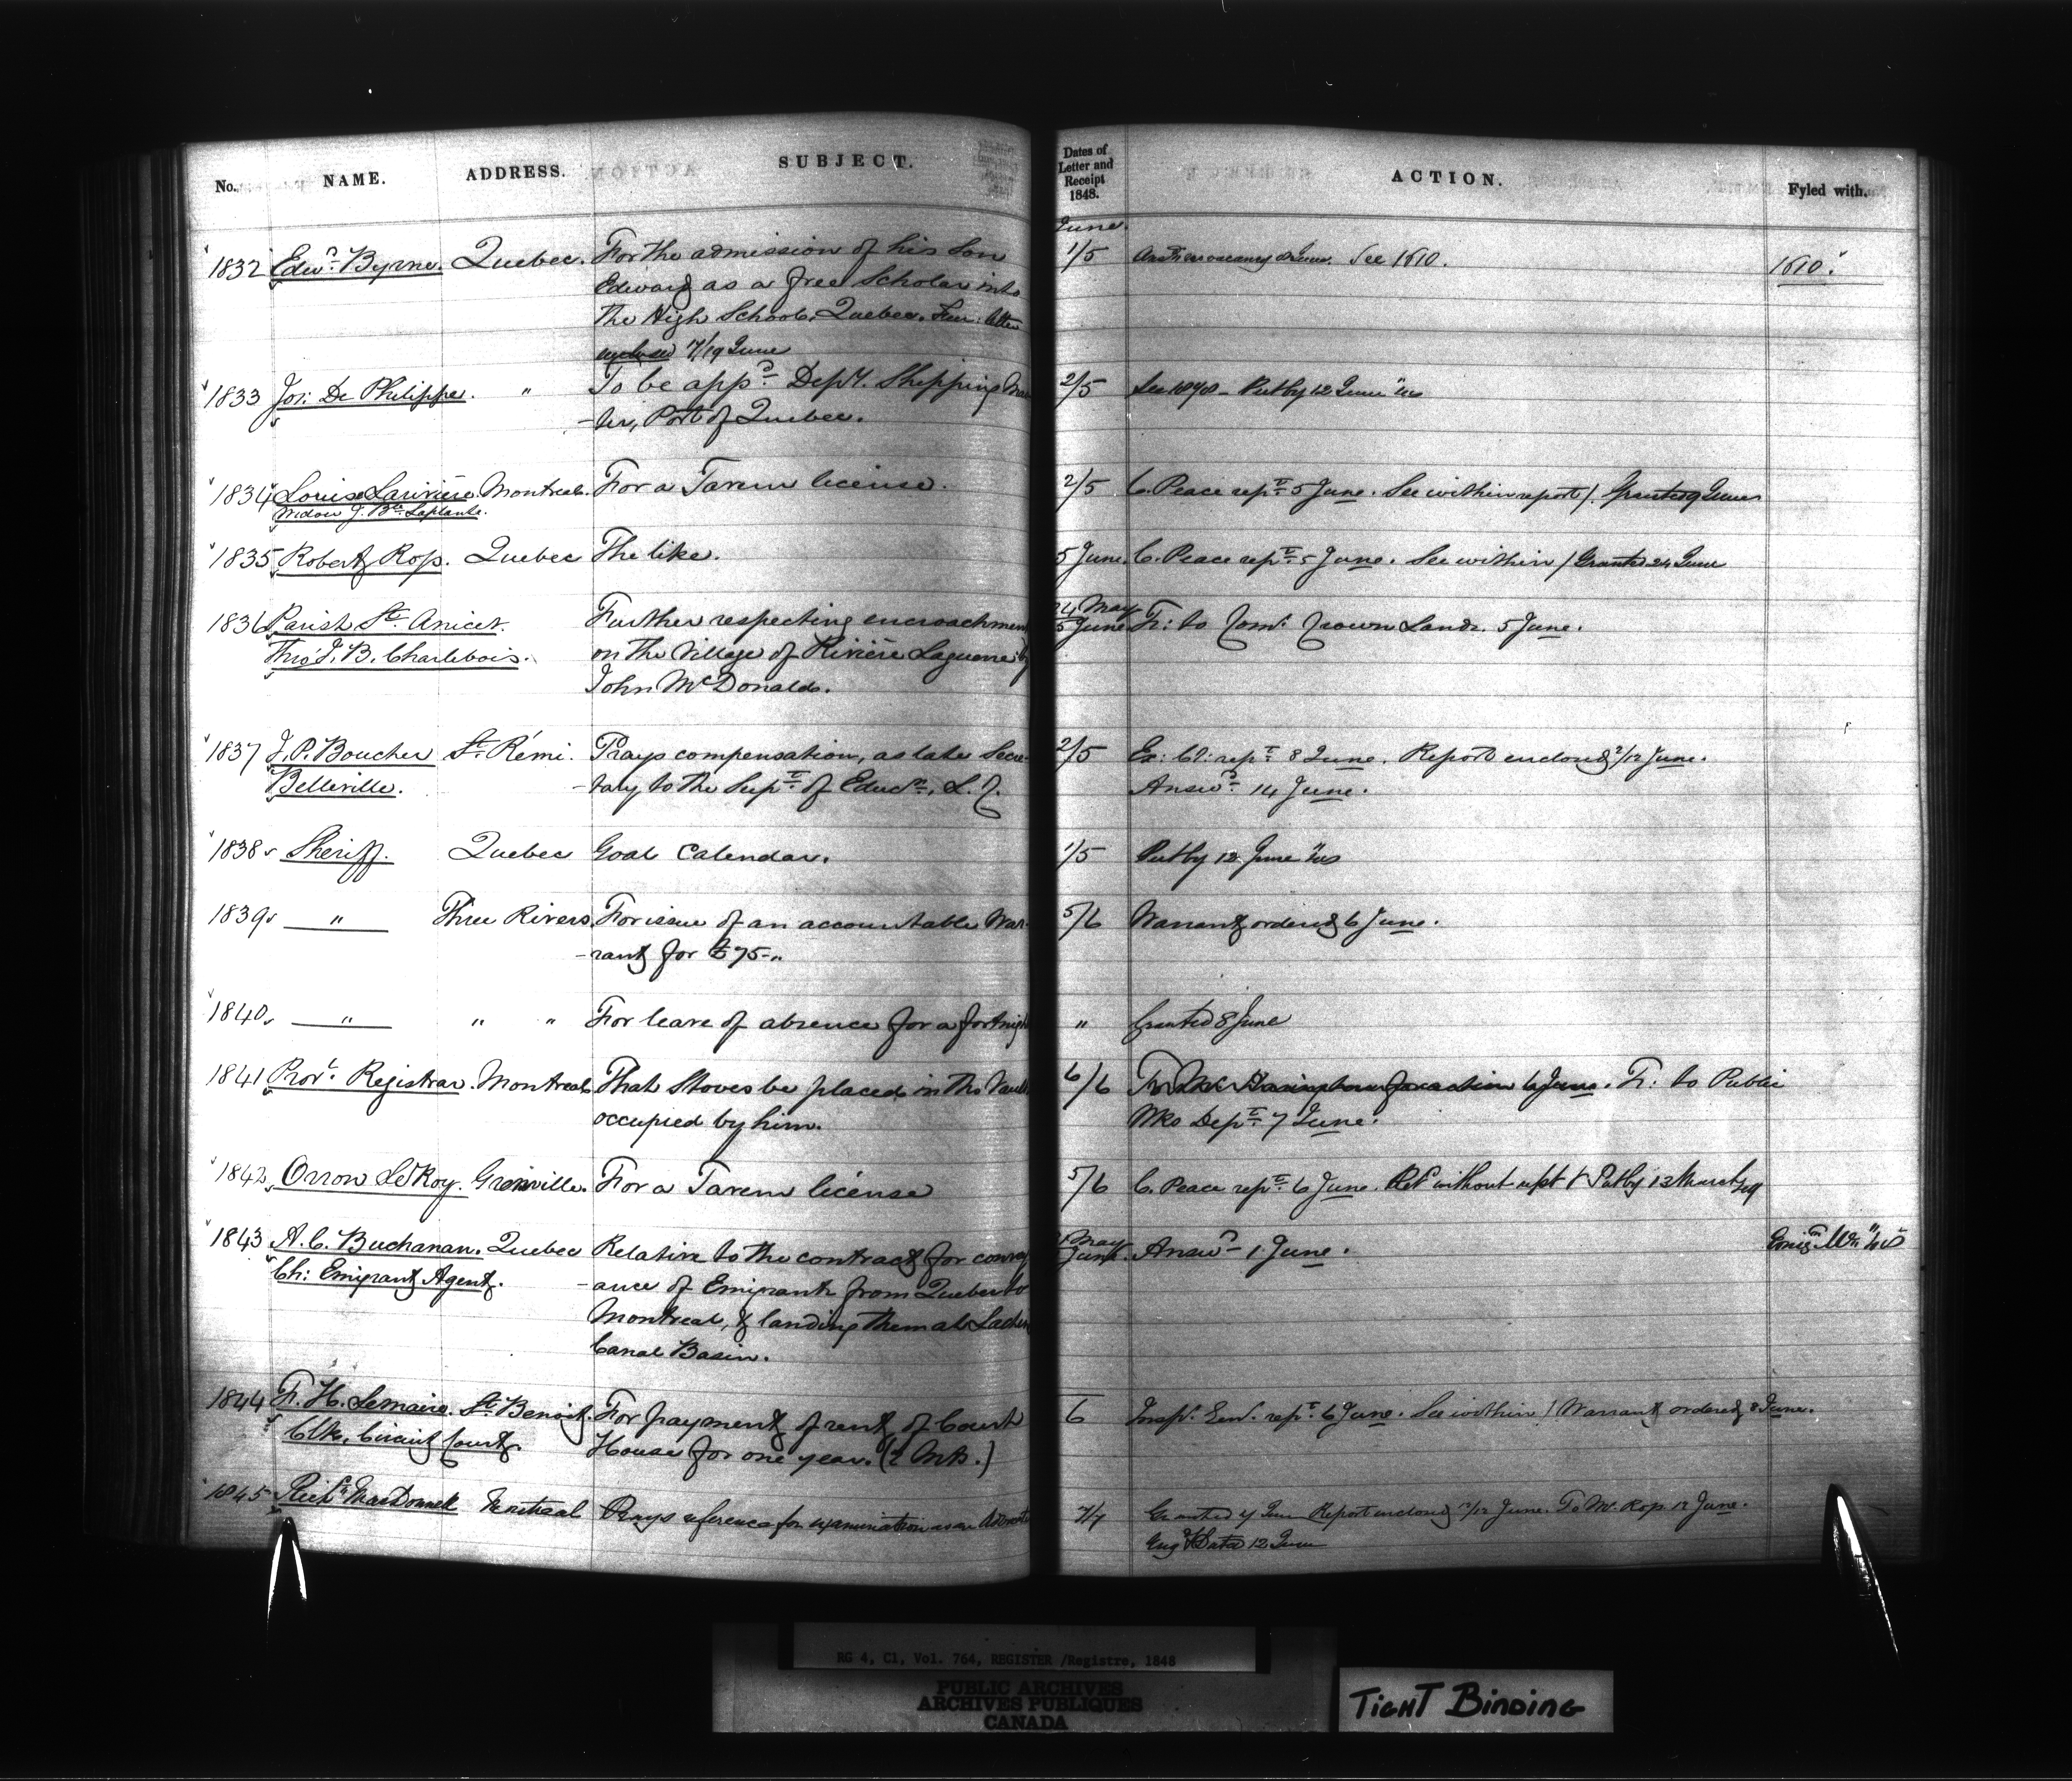 No. NAME. ADDRESS. SUBJECT. Dates of Letter and Receipt 1848. ACTION. Fyled with.
June.
1832 Edwd. Byrne. Quebec. For the admission of his Son 1/5 See 1610. 1610.
Edward as a free Scholar into
the High School, Quebec. Fur: letter
enclosed 7/19 June
1833 Jos: De Philippe. " To be appd. Depy. Shipping Mas 2/5 Put by 12 June
-ter, Port of Quebec.
1834 Louise Larivière Montreal. For a Tavern license. 2/5 C. Peace rept. 5 June. See within report /. Granted 9 June
Widow J. Bte. Laplante.
1835 Robert Ross. Quebec The like. 5 June. C. Peace rept. 5 June. See within / Granted 24 June
1836 Parish St. Anicet. Further respecting encroachment 24 May 5 June Fr: to Comr. Crown Lands. 5 June.
Thro' J. B. Charlebois. on the Village of Rivière Laguerre by
John McDonald.
1837 J. P. Boucher St. Rémi. Prays compensation, as late Secre- 2/5 Ex: Cl: rept. 8 June. Report enclosed /12 June.
Belleville. -tary to the Supt. of Educn. L. C. Answd. 14 June.
1838 Sheriff. Quebec Goal Calendar. 1/5 Put by 12 June
1839 " Three Rivers. For issue of an accountable War- 5/6 Warrant ordered 6 June.
-rant for £75-"
1840 " " " For leave of absence for a fortnigh " Granted 8 June
1841 Provl. Registrar. Montreal That Stoves be placed in the Vault 6/6 for action 6 June. Fr: to Public
occupied by him. Wks Dept. 7 June.
1842 Orron LeRoy. Grenville. For a Tavern license 5/6 C. Peace rept. 6 June. Ref without rept / Put by 13 March /49
1843 A. C. Buchanan. Quebec Relative to the contract for convey May June. Answd - 1 June.
Ch: Emigrant Agent. -ance of Emigrants from Quebec to
Montreal, & landing them at Lachin
Canal Basin.
1844 F. H. Lemaire. St. Benoit. For payment of rent of Court 6 Inspr. Genl. rept. 6 June. See within / Warrant ordered 8 June.
Clk. Circuit Court. House for one year. (2 )
1845 Richd. MacDonnell Montreal Prays reference for examination as an Advocate 7/7 Granted 7 June Report enclosed /12 June. To Mr. Ross. 12 June.
12 June
RG 4, C1, Vol. 764, REGISTER /Registre, 1848
PUBLIC ARCHIVES
ARCHIVES PUBLIQUES
CANADA
TIGHT BINDING